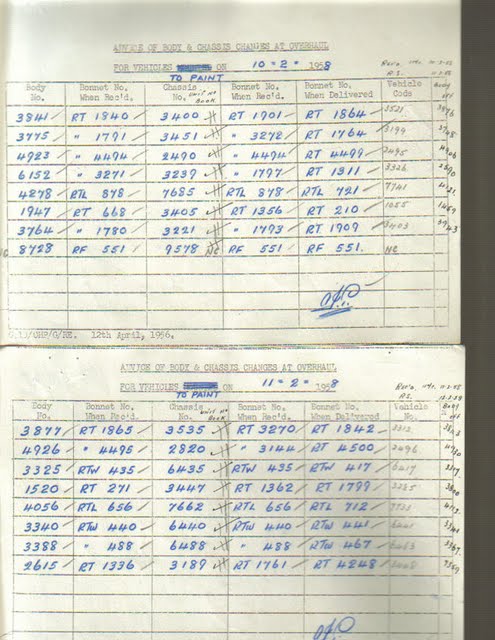 ADVICE OF BODY & CHASSIS CHANGES AT OVERHAUL
FOR VEHICLES ON 10 = 2 = 1958
TO PAINT
Body No. Bonnet No. When Rec'd. Chassis No. Unit No Book Bonnet No. When Rec'd. Bonnet No. When Delivered Vehicle Code Body
3841 RT 1840 3400 RT 1901 RT 1864 3521
3775 " 1791 3451 " 3272 RT 1764 3199
4923 " 4494 2490 " 4494 RT 4499 2495
6152 " 3271 3239 " 1797 RT 1311 3326
4278 RTL 878 7635 RTL 878 RTL 721 7741
1947 RT 668 3405 RT 1356 RT 210 1055
3764 " 1780 3221 " 1793 RT 1909 3403
8728 RF 551 9578 NC RF 551 RF 551. NC
12th April, 1956.
ADVICE OF BODY & CHASSIS CHANGES AT OVERHAUL
FOR VEHICLES ON 11 = 2 = 1958
TO PAINT
Body No. Bonnet No. When Rec'd. Chassis No. Unit No Book Bonnet No. When Rec'd. Bonnet No. When Delivered Vehicle No. Body
3877 RT 1865 3535 RT 3270 RT 1842 3512
4926 " 4495 2820 " 3144 RT 4500 2496
3325 RTW 435 6435 RTW 435 RTW 417 6417
1520 RT 271 3447 RT 1362 RT 1799
4056 RTL 656 7662 RTL 656 RTL 712
3340 RTW 440 6440 RTW 440 RTW 441
3388 " 488 6488 " 488 RTW 467
2615 RT 1336 3189 RT 1761 RT 4248